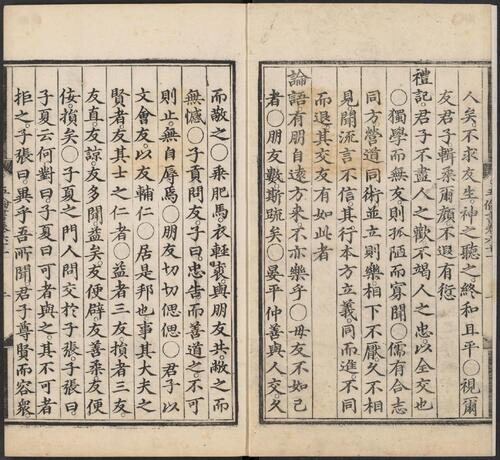 人矣不求友生。神之聽之終和且平〇視爾
友君子輯柔爾顏不遐有愆
禮記。君子不盡人之歡不竭人之忠。以全交也
〇獨學而無友。則孤陋而寡聞〇儒有合志
同方。營道同術並立則樂相下不厭。久不相
見聞流言不信。其行本方立義。同而進不同
而退其交友有如此者
論語有朋自遠方來不亦樂乎〇毋友不如己
者〇朋友數斯疏矣〇晏平仲善與人交。久
而敬之〇乘肥馬衣輕裘與朋友共。敝之而
無憾〇子貢問友子曰。忠告。而善道之。不可
則止。無自辱焉〇朋友切切偲偲〇君子以
文會友。以友輔仁〇居是邦也事其大夫之
賢者友其士之仁者〇益者三友損者三友
友直。友諒友多聞益矣。友便辟。友善柔友便
佞。損矣〇子夏之門人問交於子張。子張曰
子夏云何對曰。子夏曰可者與之。其不可者
拒之子張曰。異乎吾所聞君子尊賢而容衆